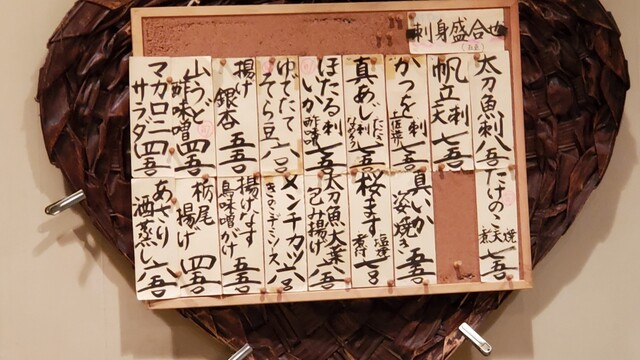 刺身盛合せ
太刀魚刺 八五
帆立 刺 天 七五
かつを 刺 土佐造 七五
真あじ 刺 たたき なめろう 七五
ほたるいか 刺 酢味噌 七五
ゆでたてそら豆 六〇
揚げ銀杏 五五
山うど酢味噌 四五
マカロニサラダ 四五
たけのこ 焼 天 煮 七五
真いか姿焼き 五五
桜ます 塩焼 煮付 七〇
太刀魚大葉包み揚げ 八五
メンチカツ きのこデミソース 六〇
揚げなす鳥味噌かけ 五五
栃尾揚げ 四五
あさり酒蒸し 六五